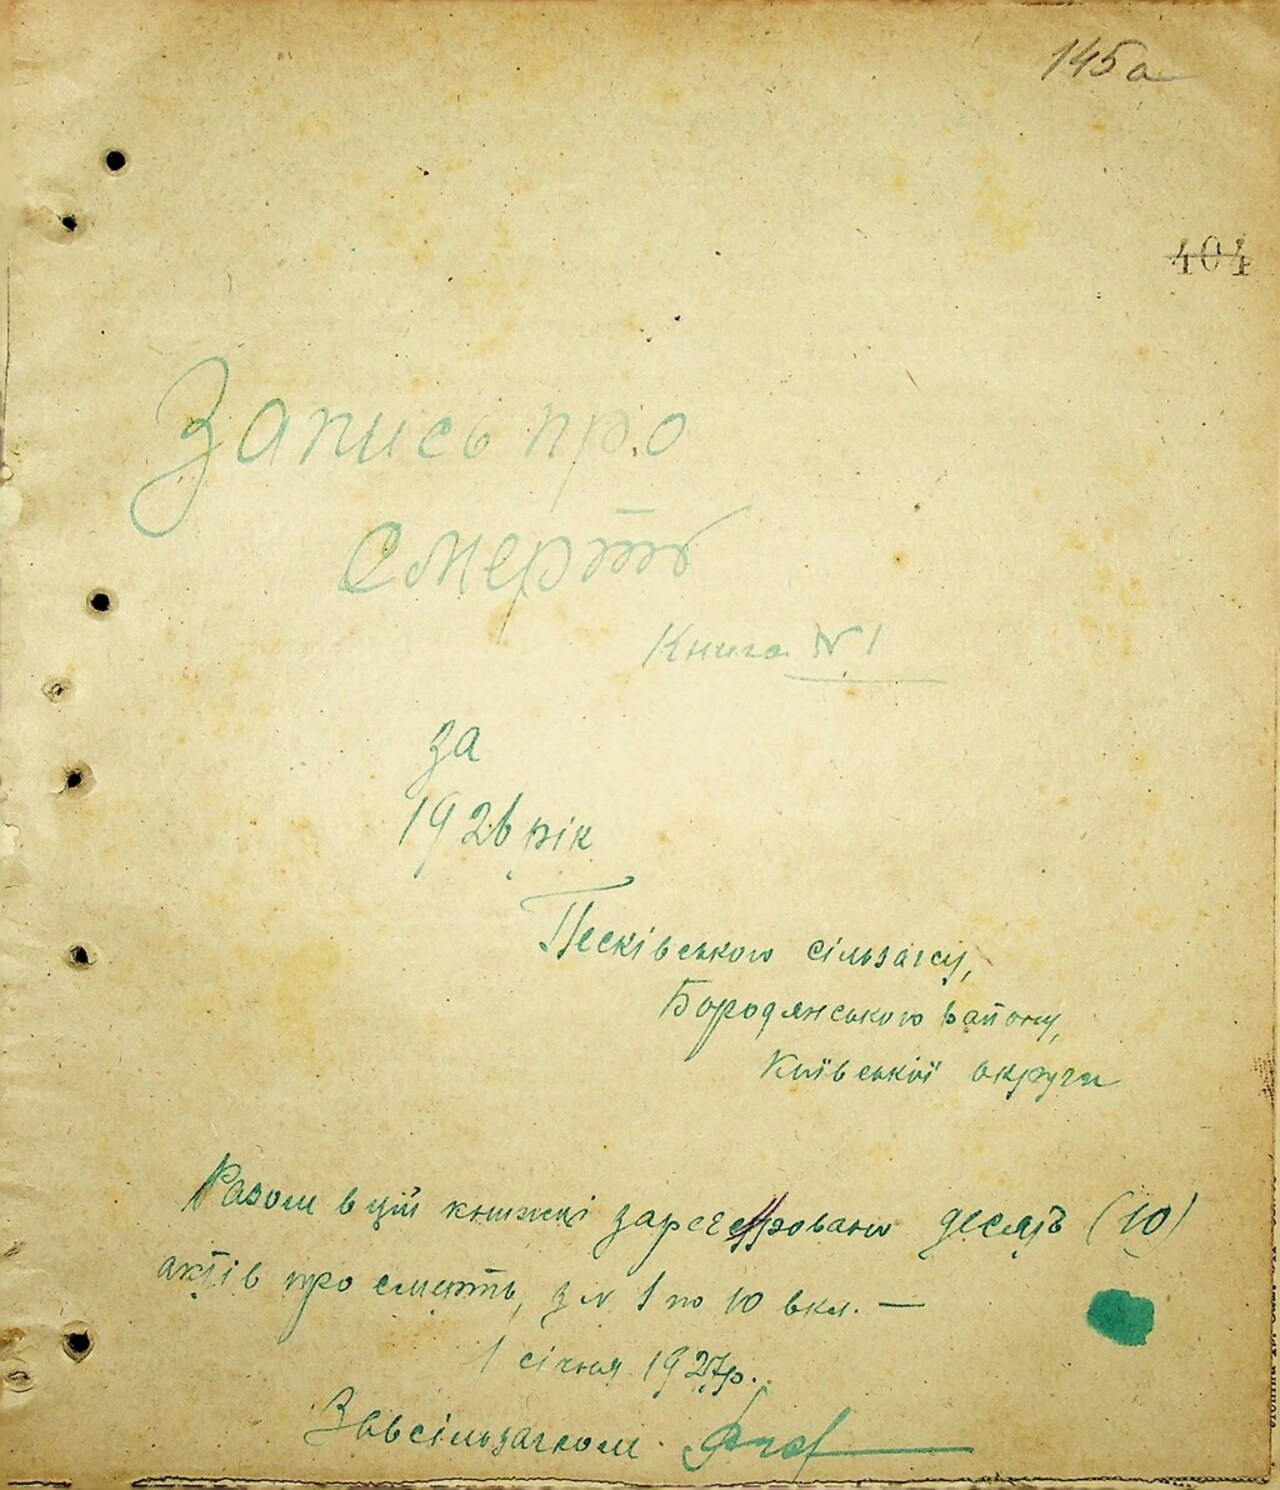 145а
404
Запись про
смерть
Книга N 1
за
1926 рік
Песківського сільзагсу,
Бородянського району,
Київської округи
Разом в цій книжці зареєстровано десять (10)
актів про смерть, з N 1 по 10 вкл. —
1 січня 1927р.
Завсільзагсом